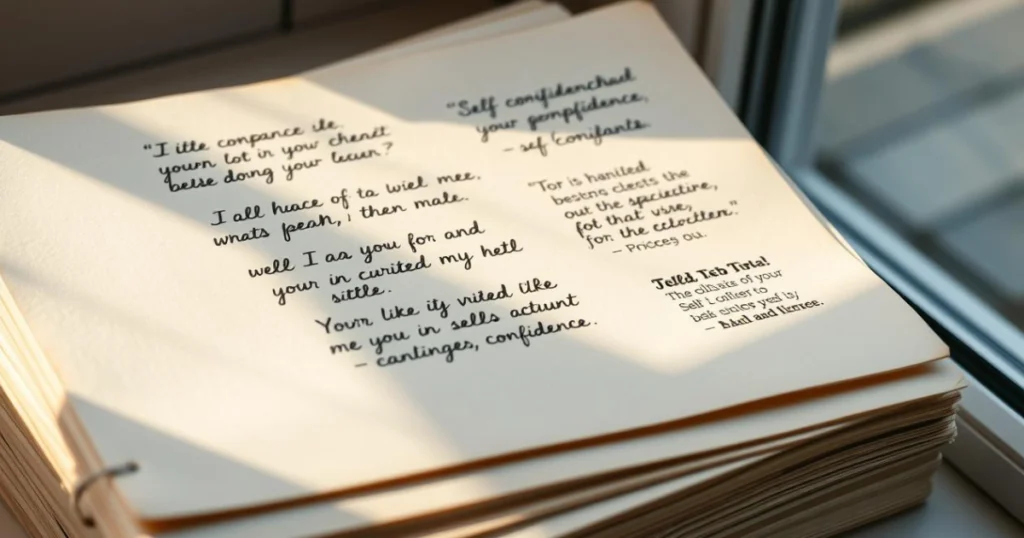 "I itte conpance ile.
yourn lot in your chenit
belse dong your lecurn?
I all huace of ta wiel mee.
whats peah, i then male.
well I as you for and
your in curited my hetl
sittle.
Yourn like ity viled like
me you in sells actuunt
– cantinges, confidence.
"Self confidenchad
your pempfidence,
– self Confants.
"Tor is haniled
bestns clests the
out the speciective,
fot that vsse,
for. the celoctten."
– Pricces ou.
Jelld Teh Tinta!
The of your
Sell to
by
– and